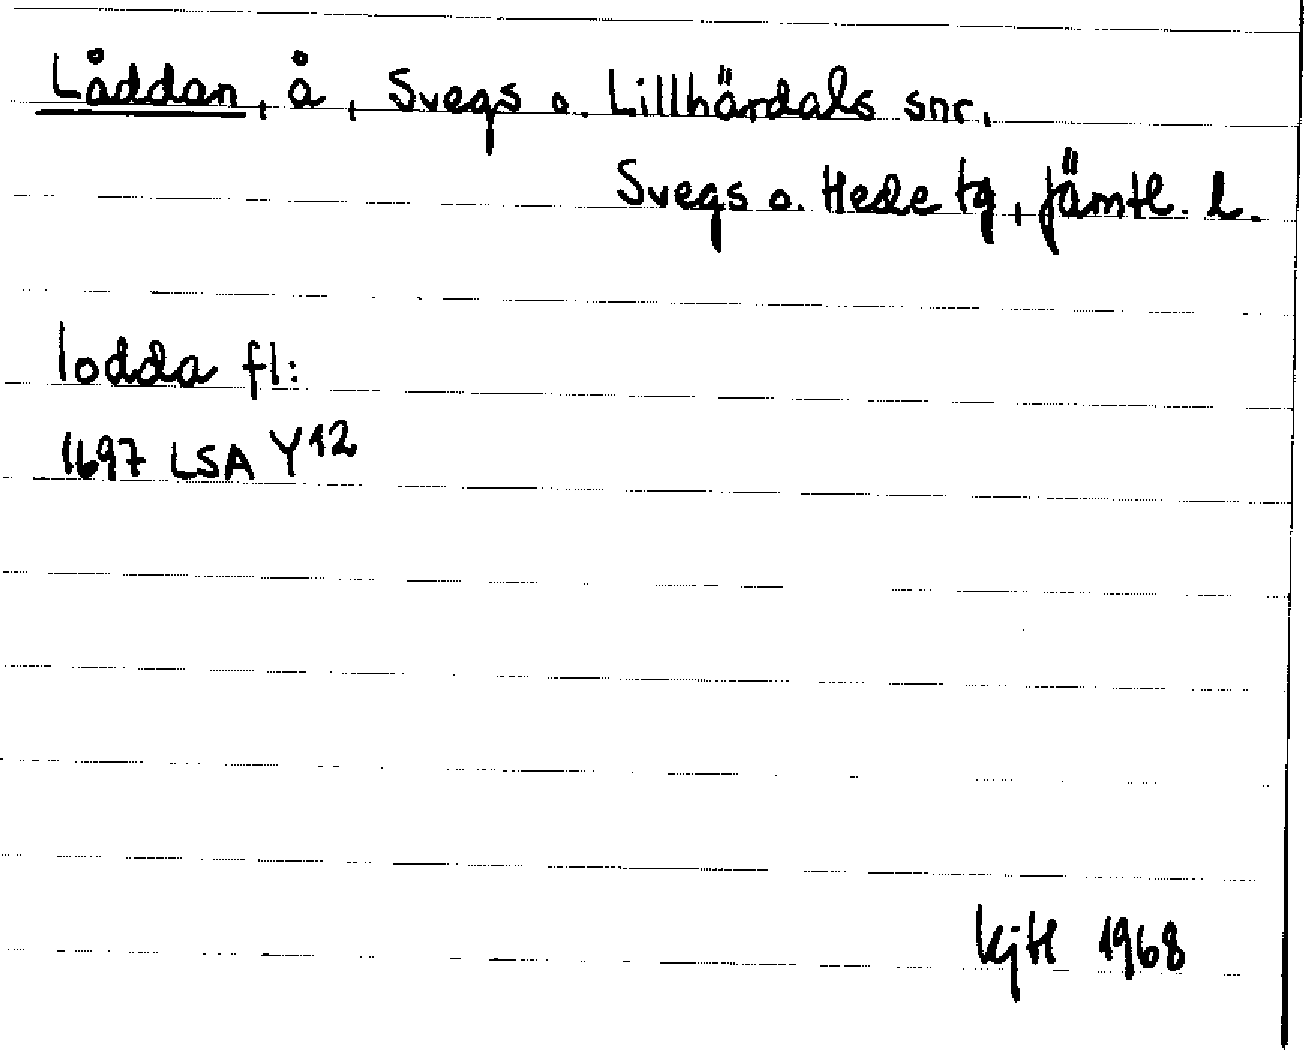 Låddan, å, Svegs o. Lillhärdals snr.
Svegs o. Hede tg, Jämtl. l.
lodda fl:
1697 LSA Y12
KjH 1968